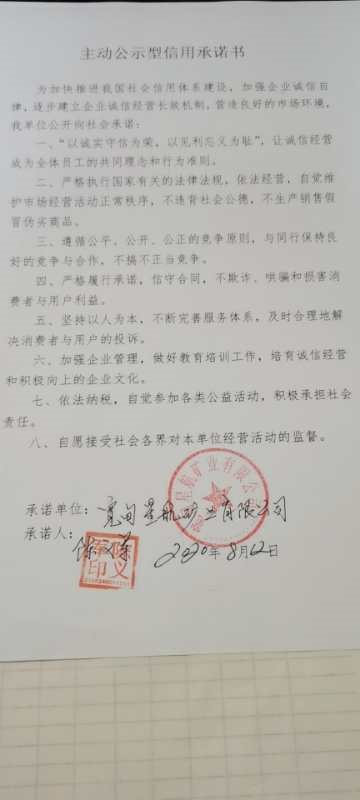 主动公示型信用承诺书
为加快推进我国社会信用体系建设，加强企业诚信自
律，逐步建立企业诚信经营长效机制，营造良好的市场环境，
我单位公开向社会承诺：
一、“以诚实守信为荣，以见利忘义为耻”，让诚信经营
成为全体员工的共同理念和行为准则。
二、严格执行国家有关的法律法规，依法经营，自觉维
护市场经营活动正常秩序，不违背社会公德，不生产销售假
冒伪劣商品。
三、遵循公平、公开、公正的竞争原则，与同行保持良
好的竞争与合作，不搞不正当竞争。
四、严格履行承诺，信守合同，不欺诈、哄骗和损害消
费者与用户利益。
五、坚持以人为本，不断完善服务体系，及时合理地解
决消费者与用户的投诉。
六、加强企业管理，做好教育培训工作，培育诚信经营
和积极向上的企业文化。
七、依法纳税，自觉参加各类公益活动，积极承担社会
责任。
八、自愿接受社会各界对本单位经营活动的监督。
承诺单位：宽甸星航矿业有限公司
承诺人：陈义
2020年8月12日
星航矿业有限公司